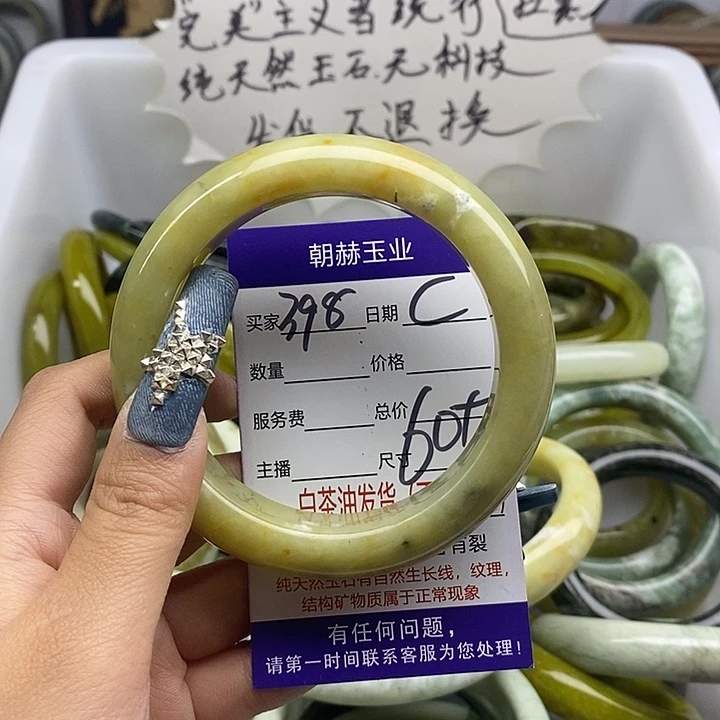 "完美"主义者绕行
纯天然玉石.无科技
不退换
朝赫玉业
买家 398 日期 C
数量 价格
服务费 总价
主播 尺寸 60+
白茶油发货
有裂
纯天然玉石有自然生长线，纹理，
结构矿物质属于正常现象
有任何问题，
请第一时间联系客服为您处理！